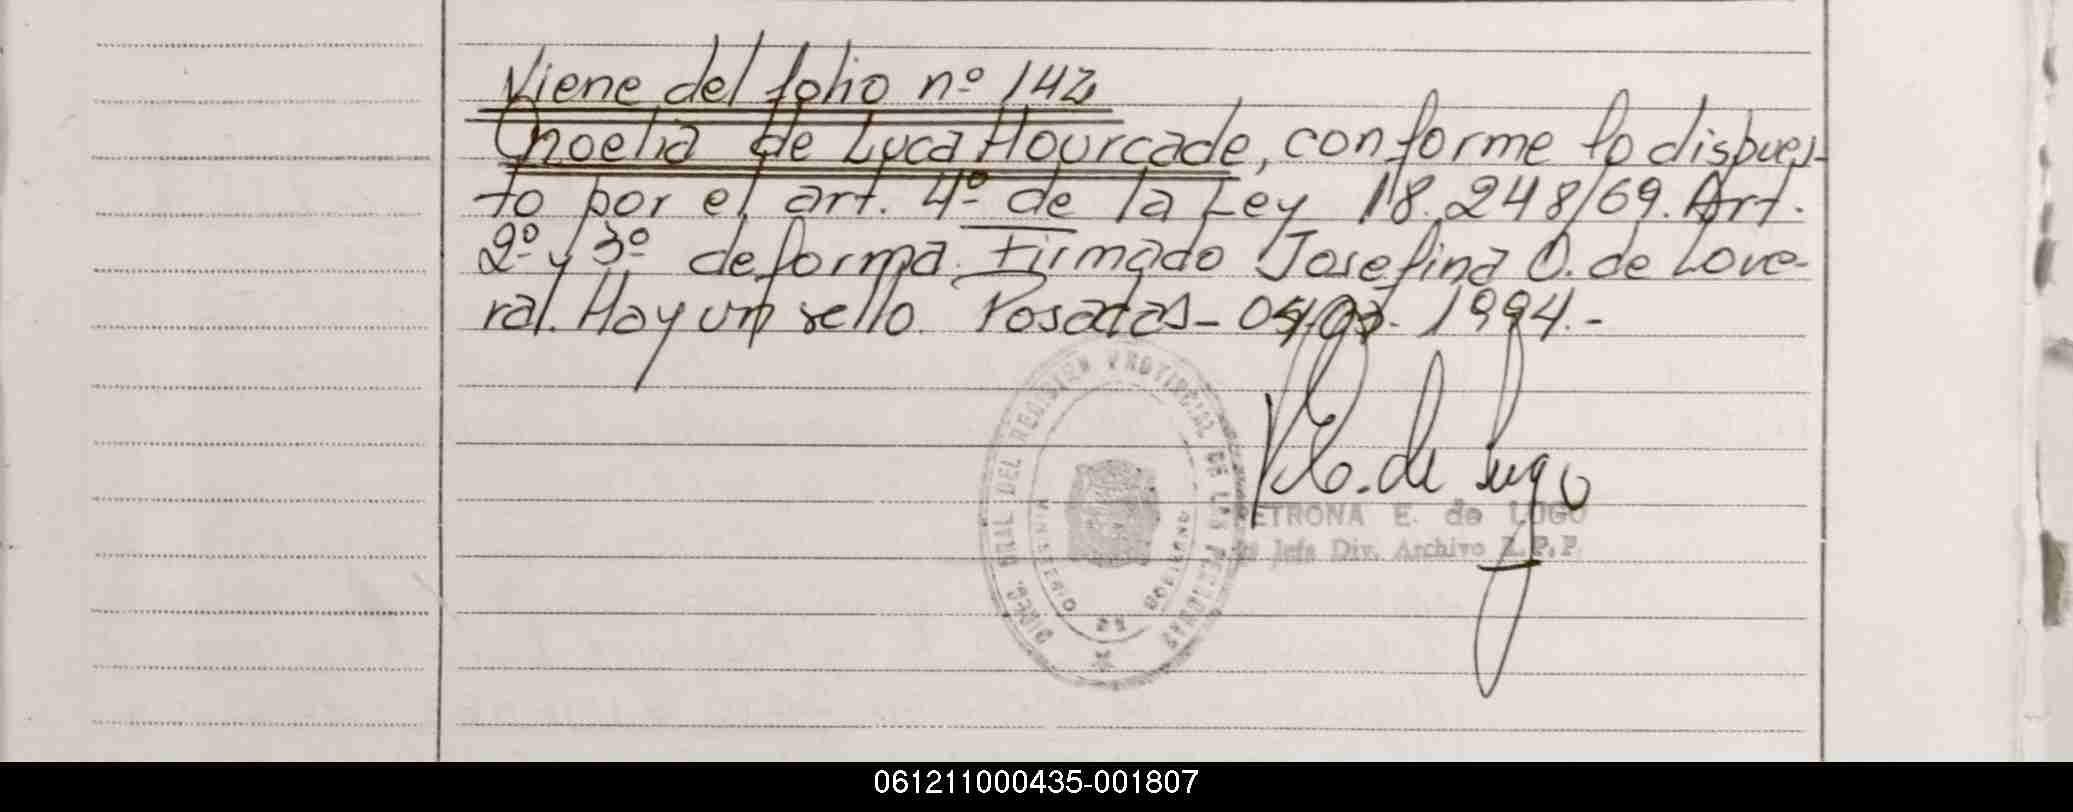 Viene del folio nº 142
Onoelia de Luca Hourcade, conforme lo dispues-
to por el art. 4º de la Ley 18.248/69. Art.
2º y 3º de forma. Firmado Josefina O. de Love-
ral. Hay un sello. Posadas - 1994.-
DIREC. GRAL DEL REGISTRO PROVINCIAL DE LAS PERSONAS
MINISTERIO DE GOBIERNO
E. de Lugo
PETRONA E. de LUGO
Jefa Div. Archivo R.P.P.
061211000435-001807